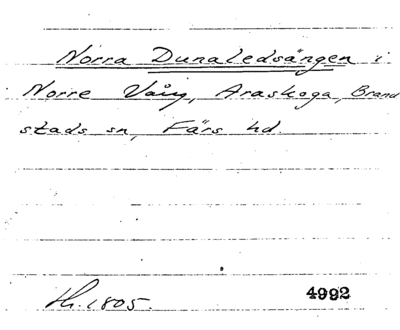 Norra Dunaledsängen i
Norre Vång, Araskoga, Brand
stads sn, Färs hd.
Hi. 1805.
4992